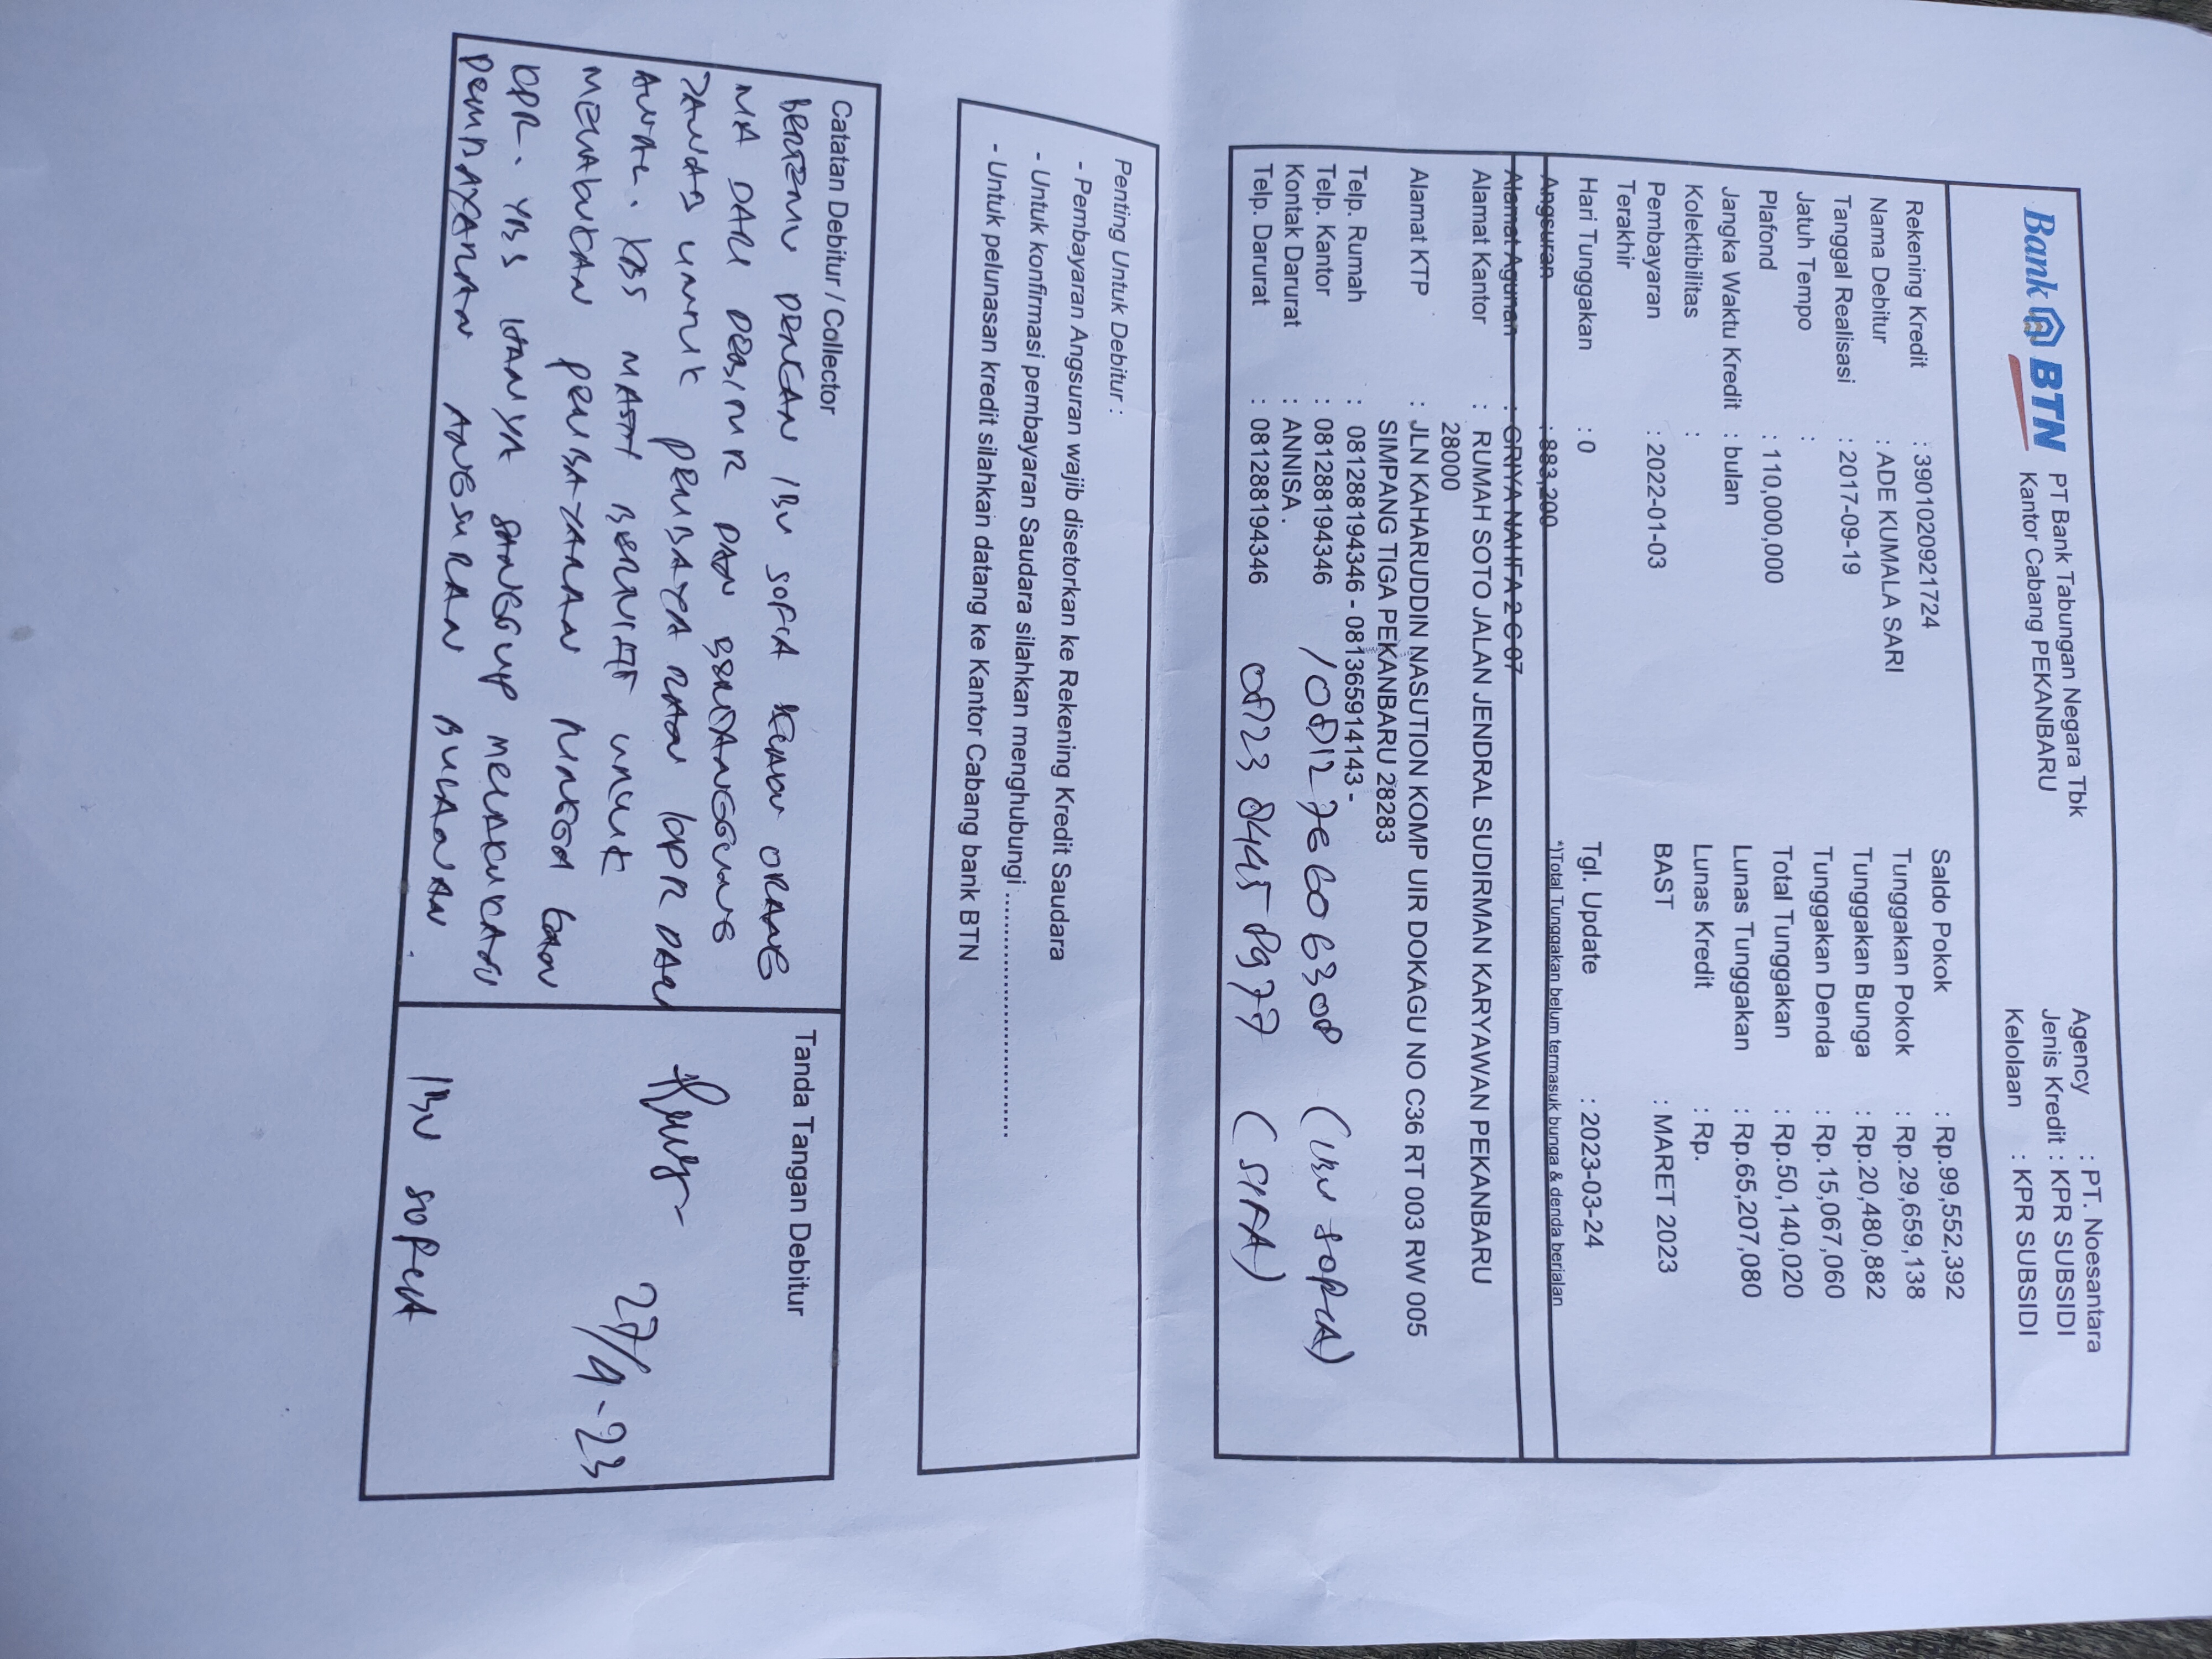 Bank BTN
PT Bank Tabungan Negara Tbk
Kantor Cabang PEKANBARU
Agency : PT. Noesantara
Jenis Kredit : KPR SUBSIDI
Kelolaan : KPR SUBSIDI
Rekening Kredit : 3901020921724
Nama Debitur : ADE KUMALA SARI
Tanggal Realisasi : 2017-09-19
Jatuh Tempo :
Plafond : 110,000,000
Jangka Waktu Kredit : bulan
Kolektibilitas :
Pembayaran Terakhir : 2022-01-03
Hari Tunggakan : 0
Saldo Pokok : Rp.99,552,392
Tunggakan Pokok : Rp.29,659,138
Tunggakan Bunga : Rp.20,480,882
Tunggakan Denda : Rp.15,067,060
Total Tunggakan : Rp.50,140,020
Lunas Tunggakan : Rp.65,207,080
Lunas Kredit : Rp.
BAST : MARET 2023
Tgl. Update : 2023-03-24
*)Total Tunggakan belum termasuk bunga & denda berjalan
Angsuran : 883,200
Alamat Agunan : GRIYA NAHFA 2 C 07
Alamat Kantor : RUMAH SOTO JALAN JENDRAL SUDIRMAN KARYAWAN PEKANBARU
28000
Alamat KTP : JLN KAHARUDDIN NASUTION KOMP UIR DOKAGU NO C36 RT 003 RW 005
SIMPANG TIGA PEKANBARU 28283
Telp. Rumah : 081288194346 - 081365914143 -
Telp. Kantor : 081288194346 / 0812 7660 6308 (IBU SOFIA)
Kontak Darurat : ANNISA .
Telp. Darurat : 081288194346 0823 8445 8977
Penting Untuk Debitur :
- Pembayaran Angsuran wajib disetorkan ke Rekening Kredit Saudara
- Untuk konfirmasi pembayaran Saudara silahkan menghubungi ..............................
- Untuk pelunasan kredit silahkan datang ke Kantor Cabang bank BTN
Catatan Debitur / Collector
BERTEMU DENGAN IBU SOFIA ORANG
TUA DARI DEBITUR DAN BERTANGGUNG
JAWAB UNTUK PEMBAYARAN KPR DARI
AWAL. YBS MASIH BERNIAT UNTUK
MELAKUKAN PEMBAYARAN RUMAH DAN
KPR. YBS HANYA SANGGUP MELAKUKAN
PEMBAYARAN ANGSURAN BULANAN.
Tanda Tangan Debitur
27/4-23
IBU SOFIA